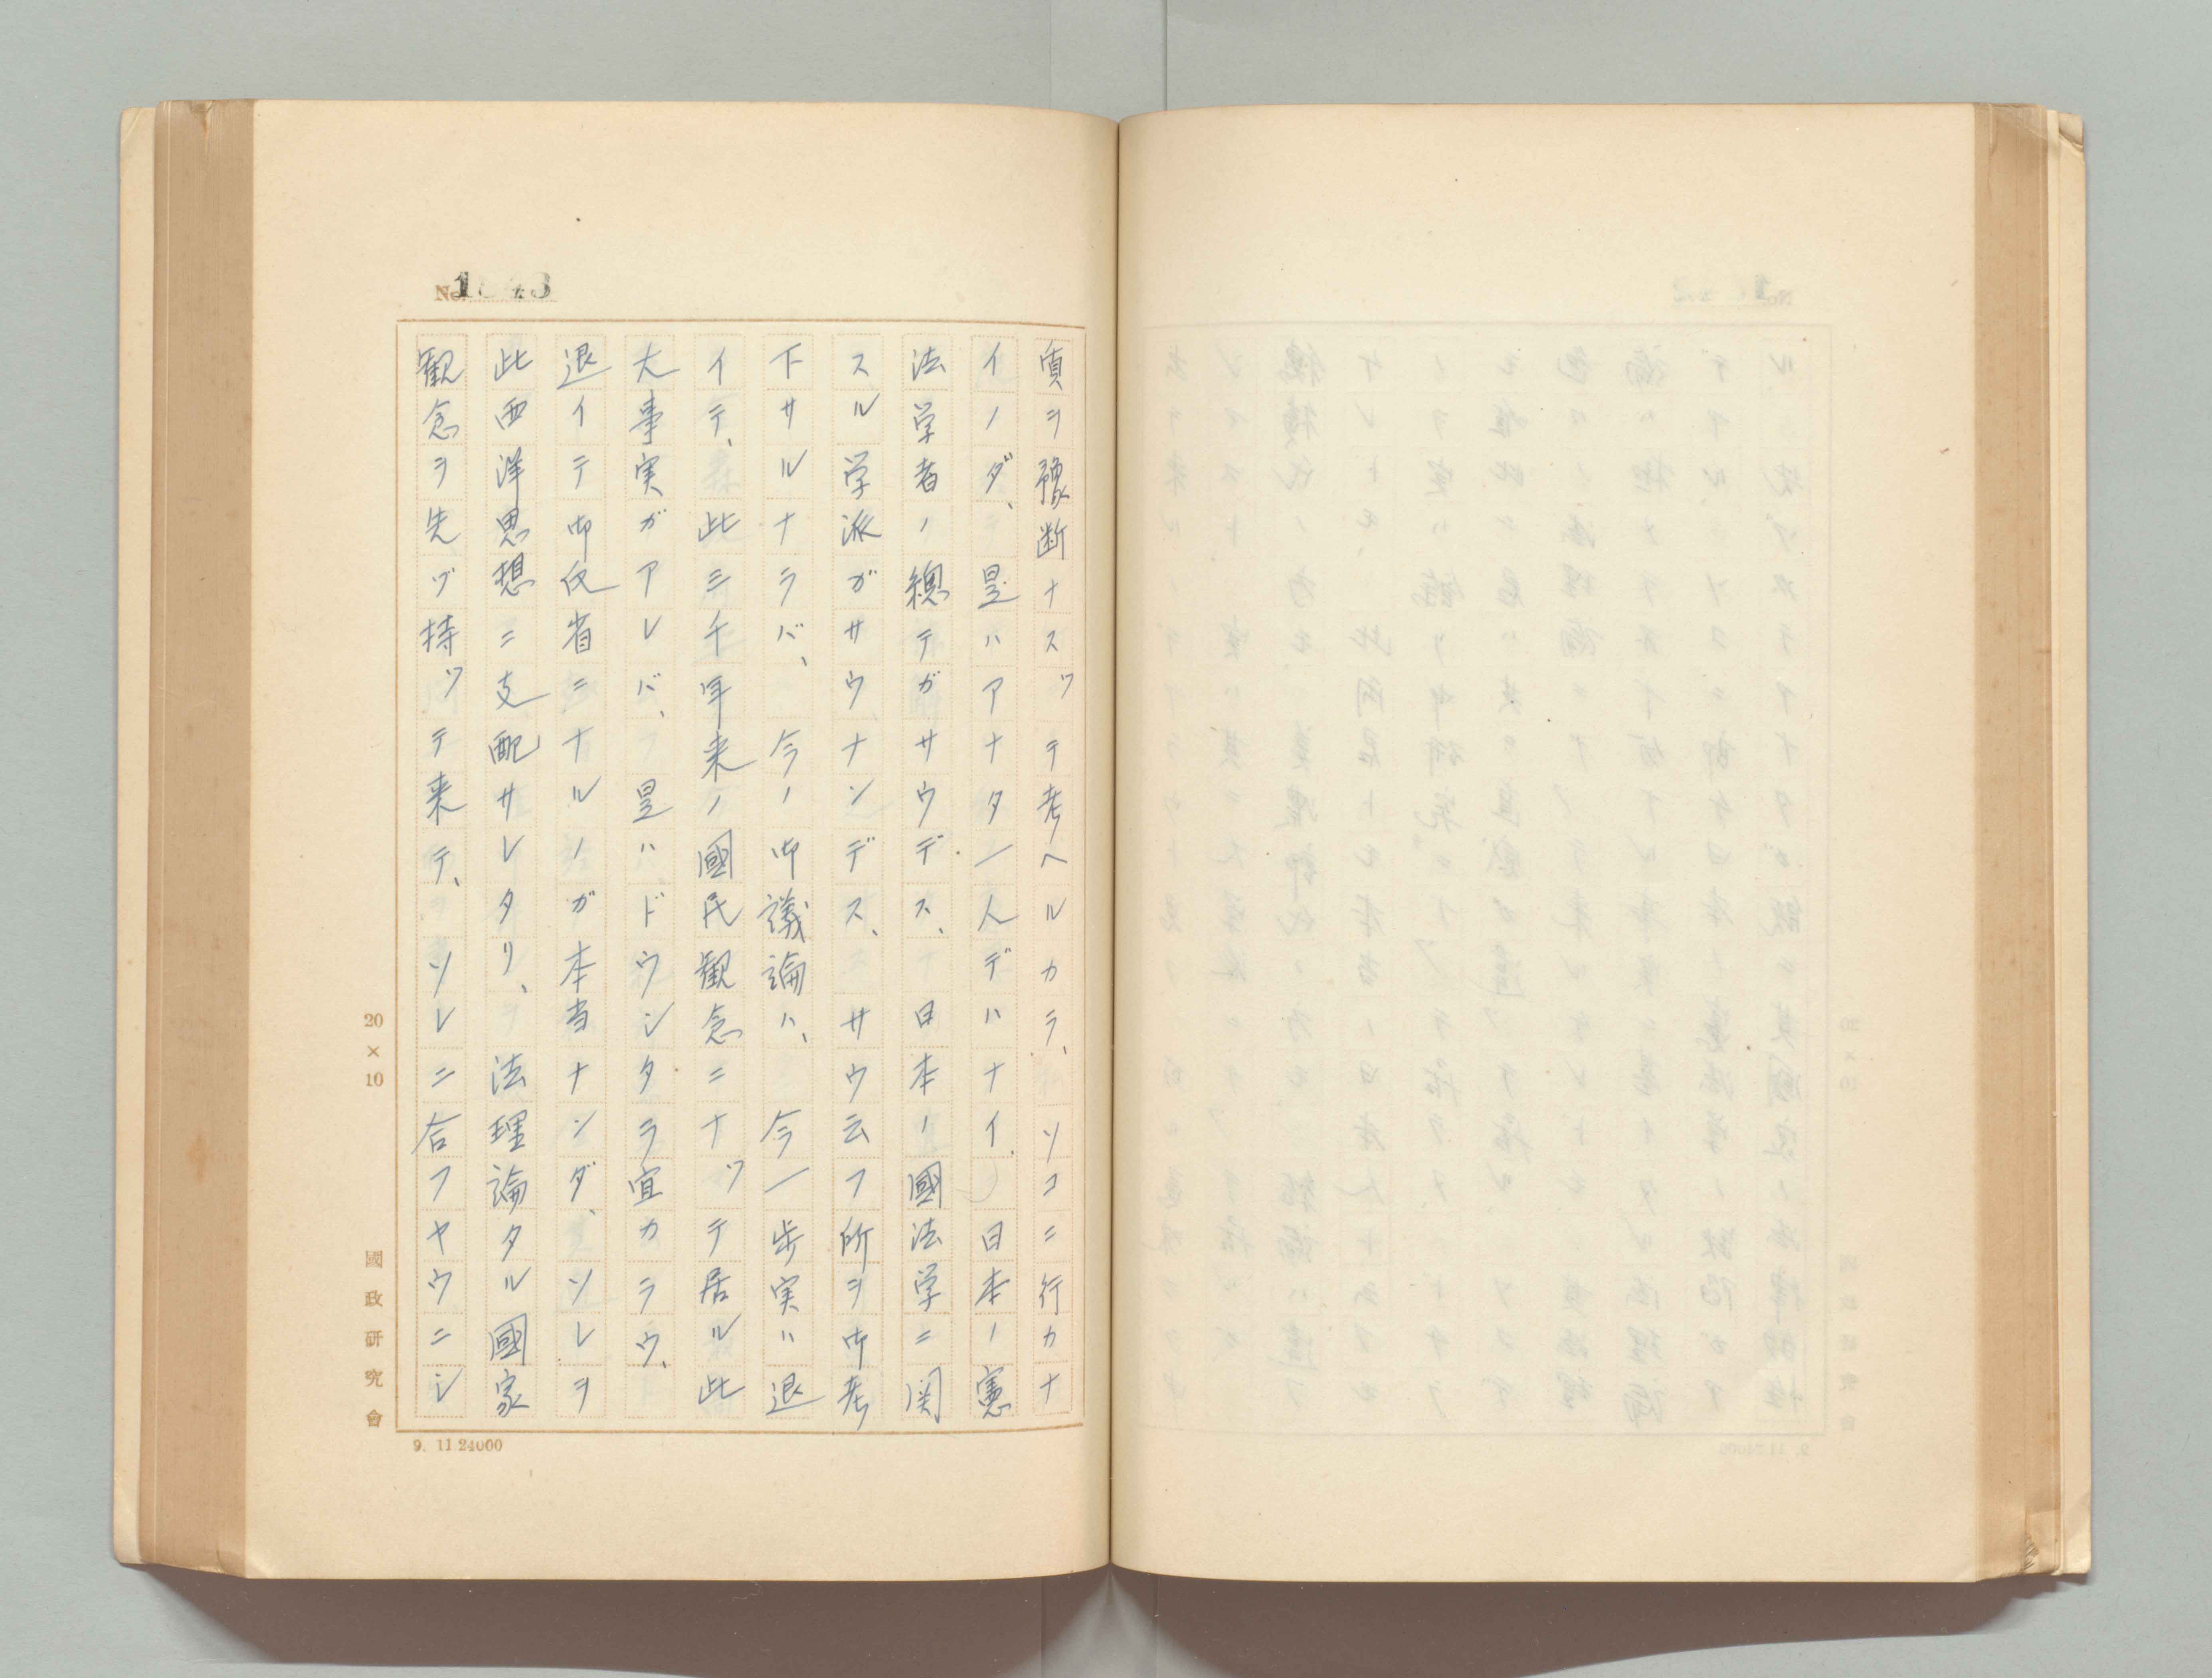 質ヲ豫断ナスッテ考ヘルカラ、ソコニ行カナ
イノダ、是ハアナタ一人デハナイ、日本ノ憲
法学者ノ總テガサウデス、日本ノ國法学ニ関
スル学派ガサウナンデス、サウ云フ所ヲ御考
下サルナラバ、今ノ御議論ハ、今一歩実ハ退
イテ、此三千年来ノ國民観念ニナッテ居ル此
大事実ガアレバ、是ハドウシタラ宜カラウ、
退イテ御反省ニナルノガ本当ナンダ、ソレヲ
此西洋思想ニ支配サレタリ、法理論タル國家
観念ヲ先ヅ持ッテ来テ、ソレニ合フヤウニシ
20×10
國政研究會
9. 11.24000